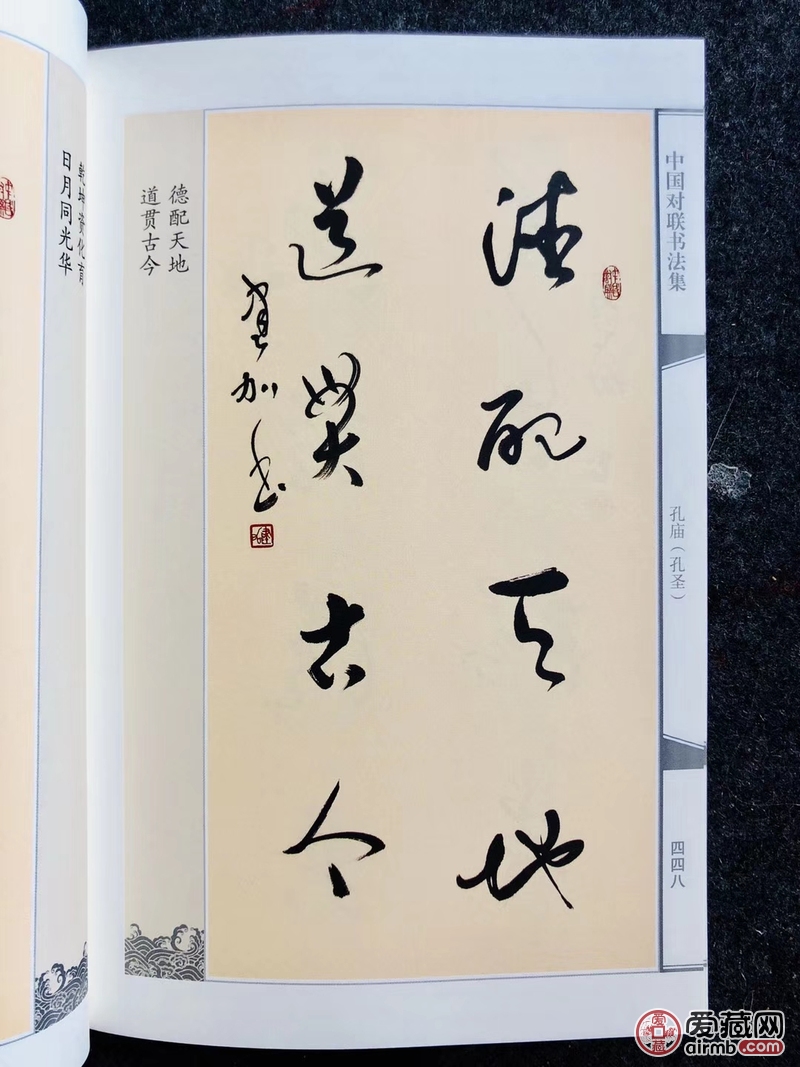 中国对联书法集
孔庙（孔圣）
四四八
德配天地
道贯古今
加书
德配天地
道贯古今
乾坤资化育
日月同光华
爱藏网
airmb.com